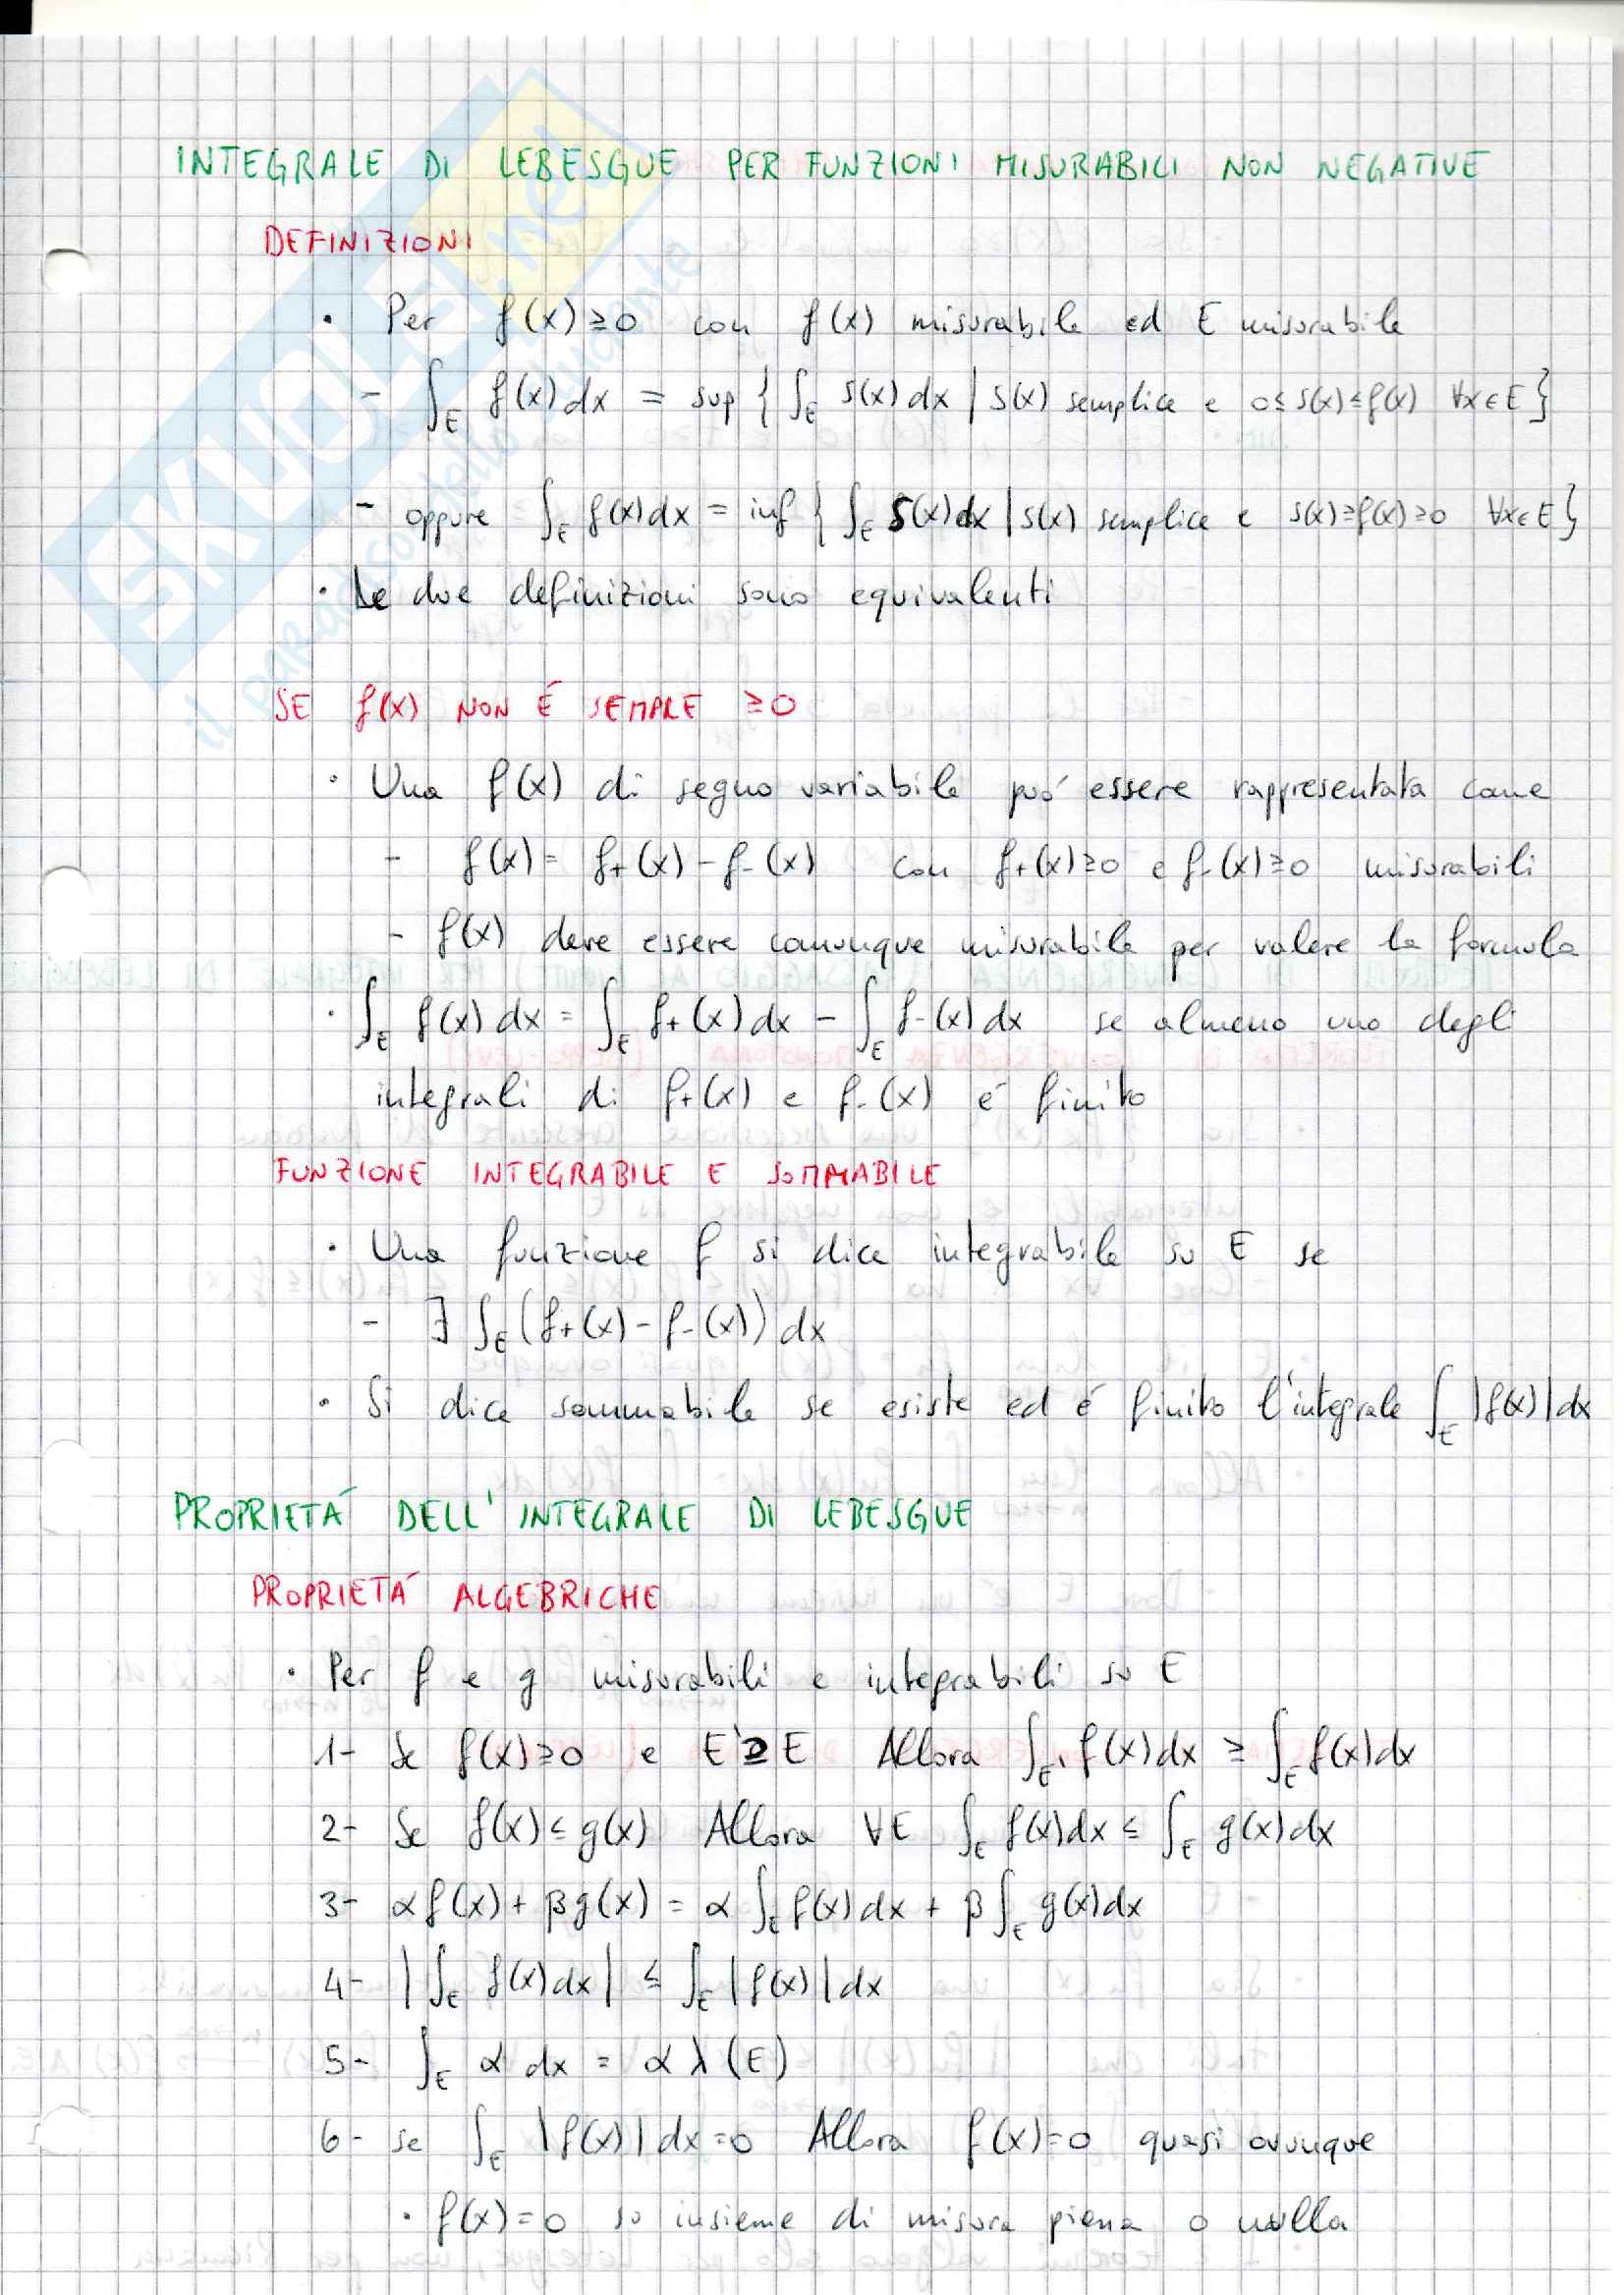 INTEGRALE DI LEBESGUE PER FUNZIONI MISURABILI NON NEGATIVE
DEFINIZIONI
• Per f(x) ≥ 0 con f(x) misurabile ed E misurabile
- ∫_E f(x) dx = sup { ∫_E s(x) dx | s(x) semplice e 0 ≤ s(x) ≤ f(x) ∀x ∈ E }
- oppure ∫_E f(x) dx = inf { ∫_E s(x) dx | s(x) semplice e s(x) ≥ f(x) ≥ 0 ∀x ∈ E }
• Le due definizioni sono equivalenti
SE f(x) NON É SEMPRE ≥ 0
• Una f(x) di segno variabile puó essere rappresentata come
- f(x) = f+(x) - f-(x) con f+(x) ≥ 0 e f-(x) ≥ 0 misurabili
- f(x) deve essere comunque misurabile per valere la formula
• ∫_E f(x) dx = ∫_E f+(x) dx - ∫_E f-(x) dx se almeno uno degli
integrali di f+(x) e f-(x) é finito
FUNZIONE INTEGRABILE E SOMMABILE
• Una funzione f si dice integrabile su E se
- ∃ ∫_E (f+(x) - f-(x)) dx
• Si dice sommabile se esiste ed é finito l'integrale ∫_E |f(x)| dx
PROPRIETÁ DELL'INTEGRALE DI LEBESGUE
PROPRIETÁ ALGEBRICHE
• Per f e g misurabili e integrabili su E
1- Se f(x) ≥ 0 e E' ⊇ E Allora ∫_E' f(x) dx ≥ ∫_E f(x) dx
2- Se f(x) ≤ g(x) Allora ∀E ∫_E f(x) dx ≤ ∫_E g(x) dx
3- αf(x) + βg(x) = α ∫_E f(x) dx + β ∫_E g(x) dx
4- |∫_E f(x) dx| ≤ ∫_E |f(x)| dx
5- ∫_E α dx = α λ(E)
6- se ∫_E |f(x)| dx = 0 Allora f(x) = 0 quasi ovunque
• f(x) = 0 su insieme di misura piena o nulla
SKUOLA.net
il paradiso dello studente